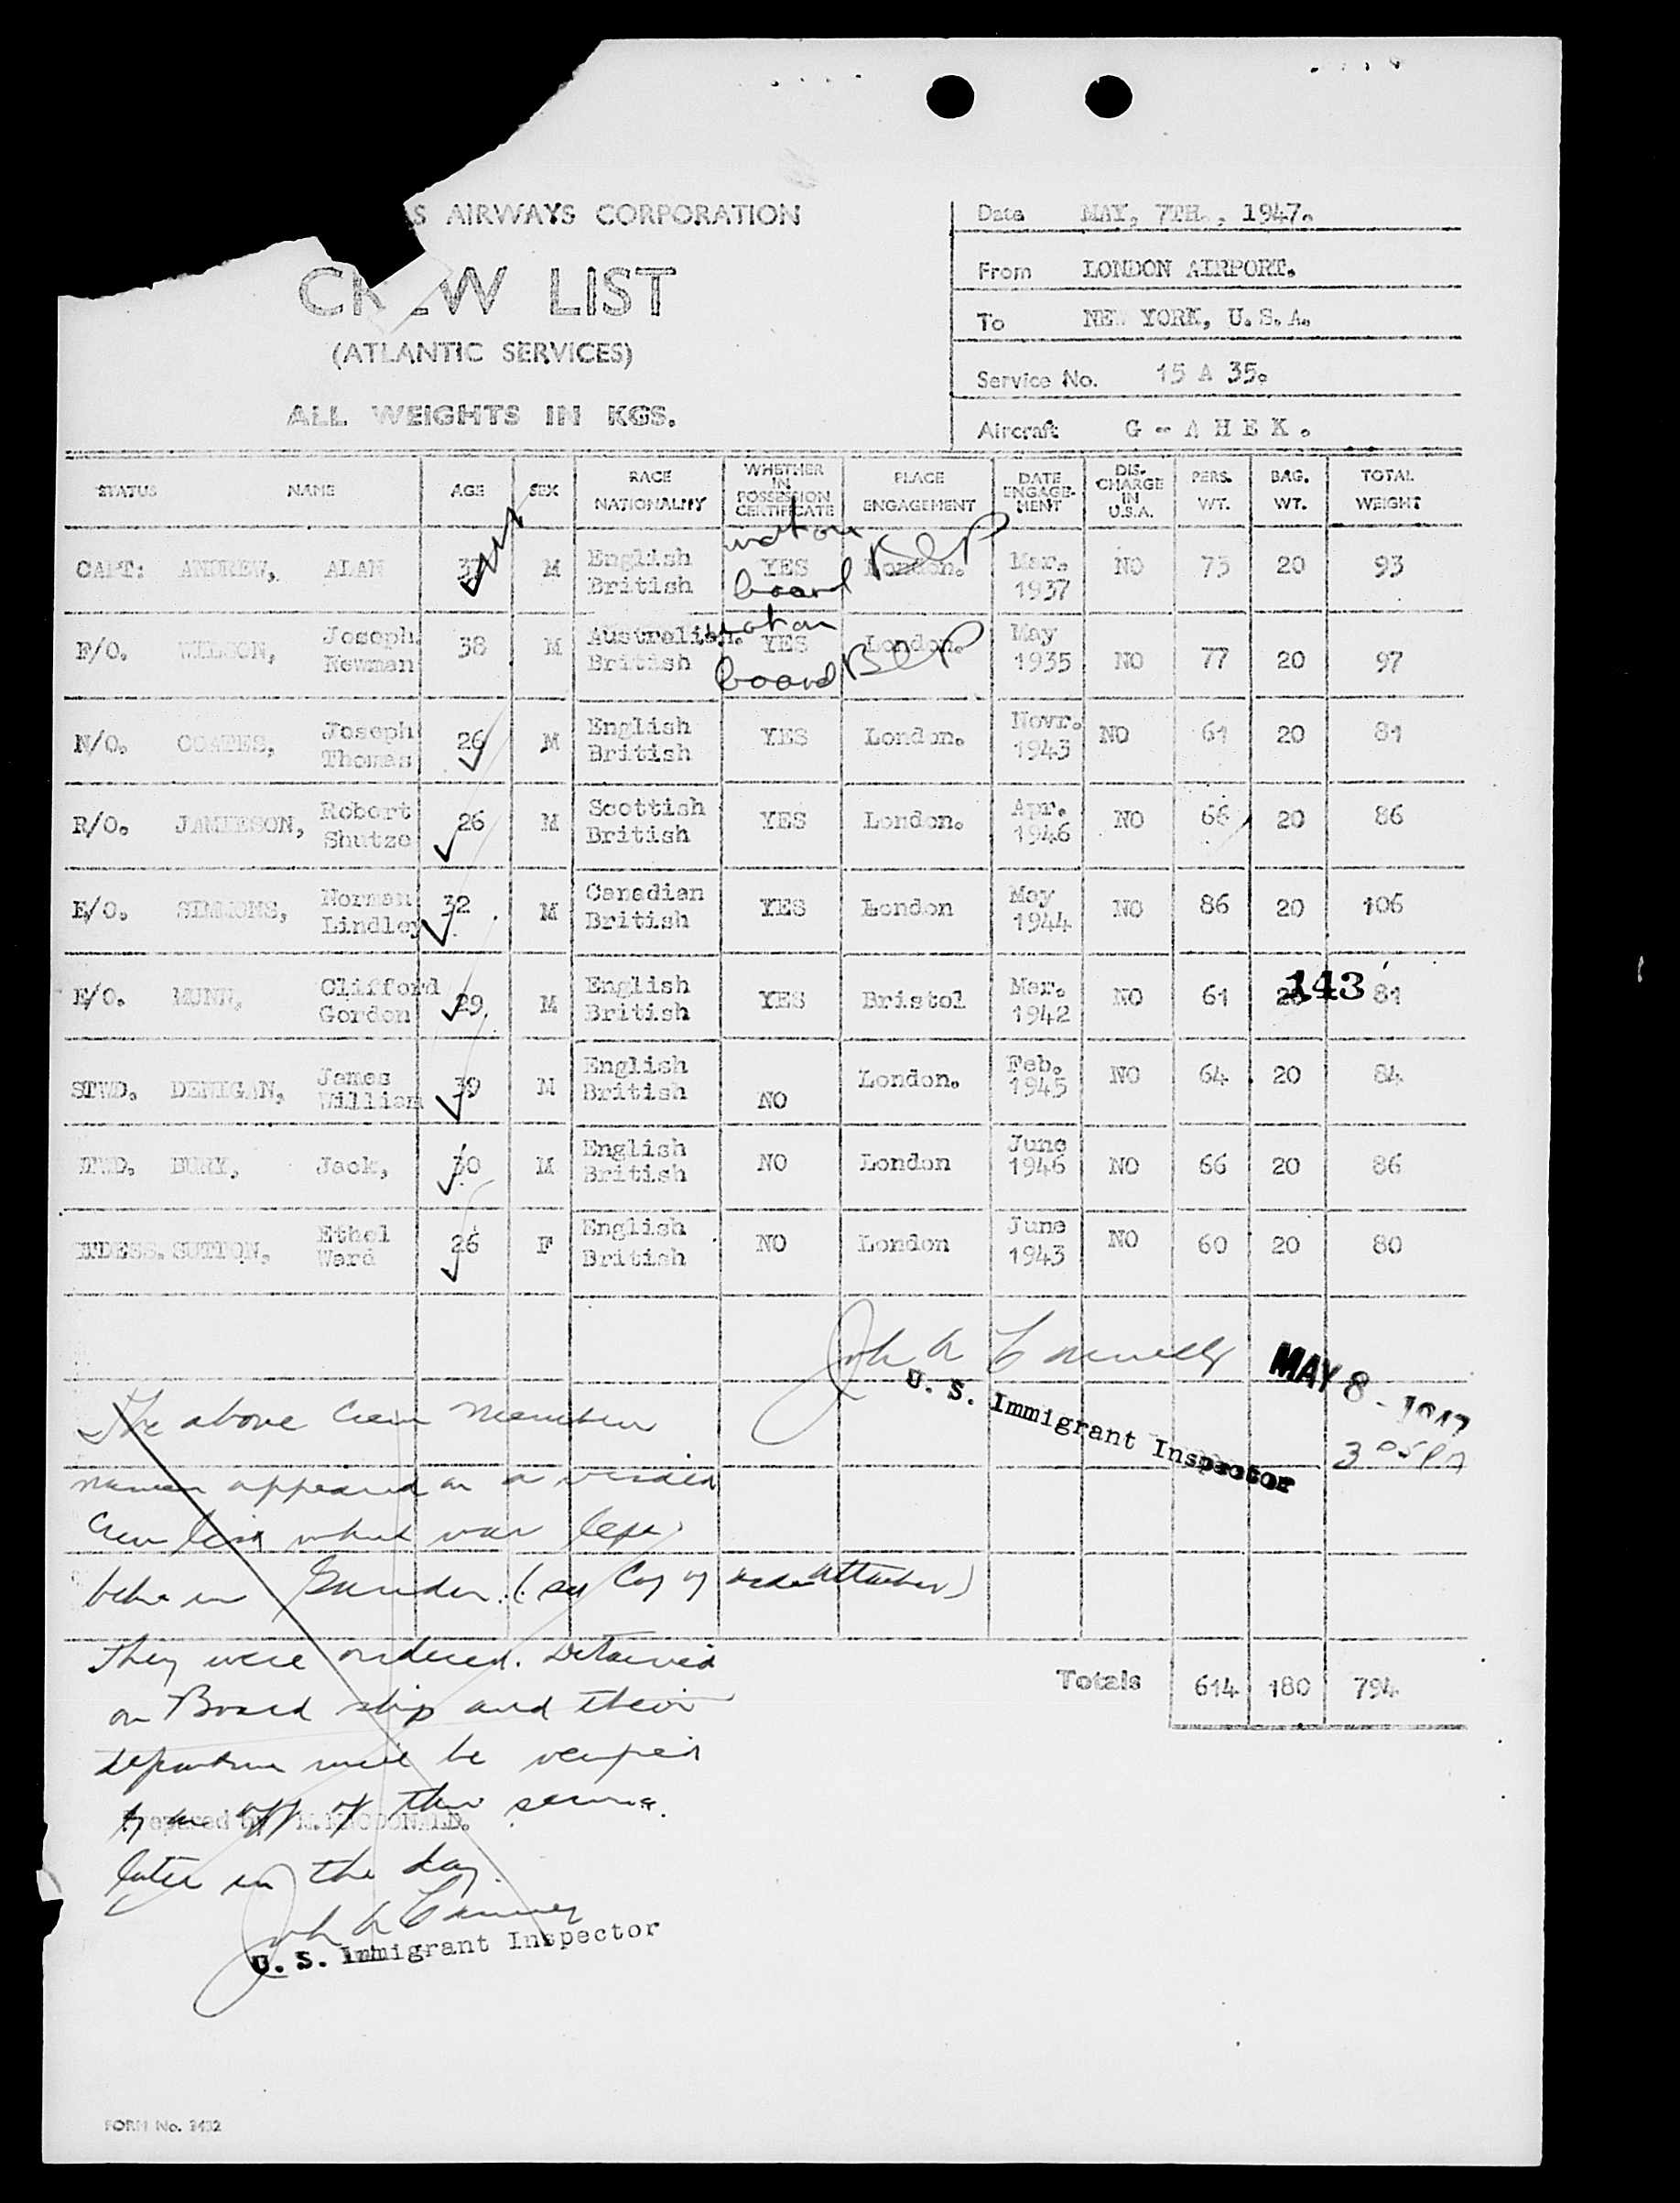 S AIRWAYS CORPORATION
CREW LIST
(ATLANTIC SERVICES)
ALL WEIGHTS IN KGS.
Date MAY, 7TH., 1947.
From LONDON AIRPORT.
To NEW YORK, U.S.A.
Service No. 15 A 35.
Aircraft G - A H E K .
STATUS NAME AGE SEX RACE NATIONALITY WHETHER IN POSSESSION CERTIFICATE PLACE ENGAGEMENT DATE ENGAGE-MENT DIS-CHARGE IN U.S.A. PERS. WT. BAG. WT. TOTAL WEIGHT
CAPT: ANDREW, ALAN M English British YES London. Mar. 1937 NO 73 20 93
not on board
F/O. WILSON, Joseph Newman 38 M Australian. British YES London. May 1935 NO 77 20 97
not on board
N/O. COATES, Joseph Thomas 26 M English British YES London. Novr. 1943 NO 61 20 81
R/O. JAMIESON, Robert Shutze 26 M Scottish British YES London. Apr. 1946 NO 66 20 86
E/O. SIMMONS, Norman Lindley 32 M Canadian British YES London May 1944 NO 86 20 106
E/O. MUNN, Clifford Gordon 29 M English British YES Bristol Mar. 1942 NO 61 20 81
143
STWD. DENIGAN, James William 39 M English British NO London. Feb. 1945 NO 64 20 84
STWD. BURY, Jack, 30 M English British NO London June 1946 NO 66 20 86
STDESS. SUTTON, Ethel Ward 26 F English British NO London June 1943 NO 60 20 80
U. S. Immigrant Inspector
MAY 8 - 1947
3 05 PM
The above Crew members
names appeared on a
Crew list which was left
Gander. (see Copy of attached)
They were ordered. Detained
on Board ship and their
departure must be verified
Prepared by M. MACDONALD.
later in the day.
U. S. Immigrant Inspector
Totals 614 180 794
FORM No. 2432